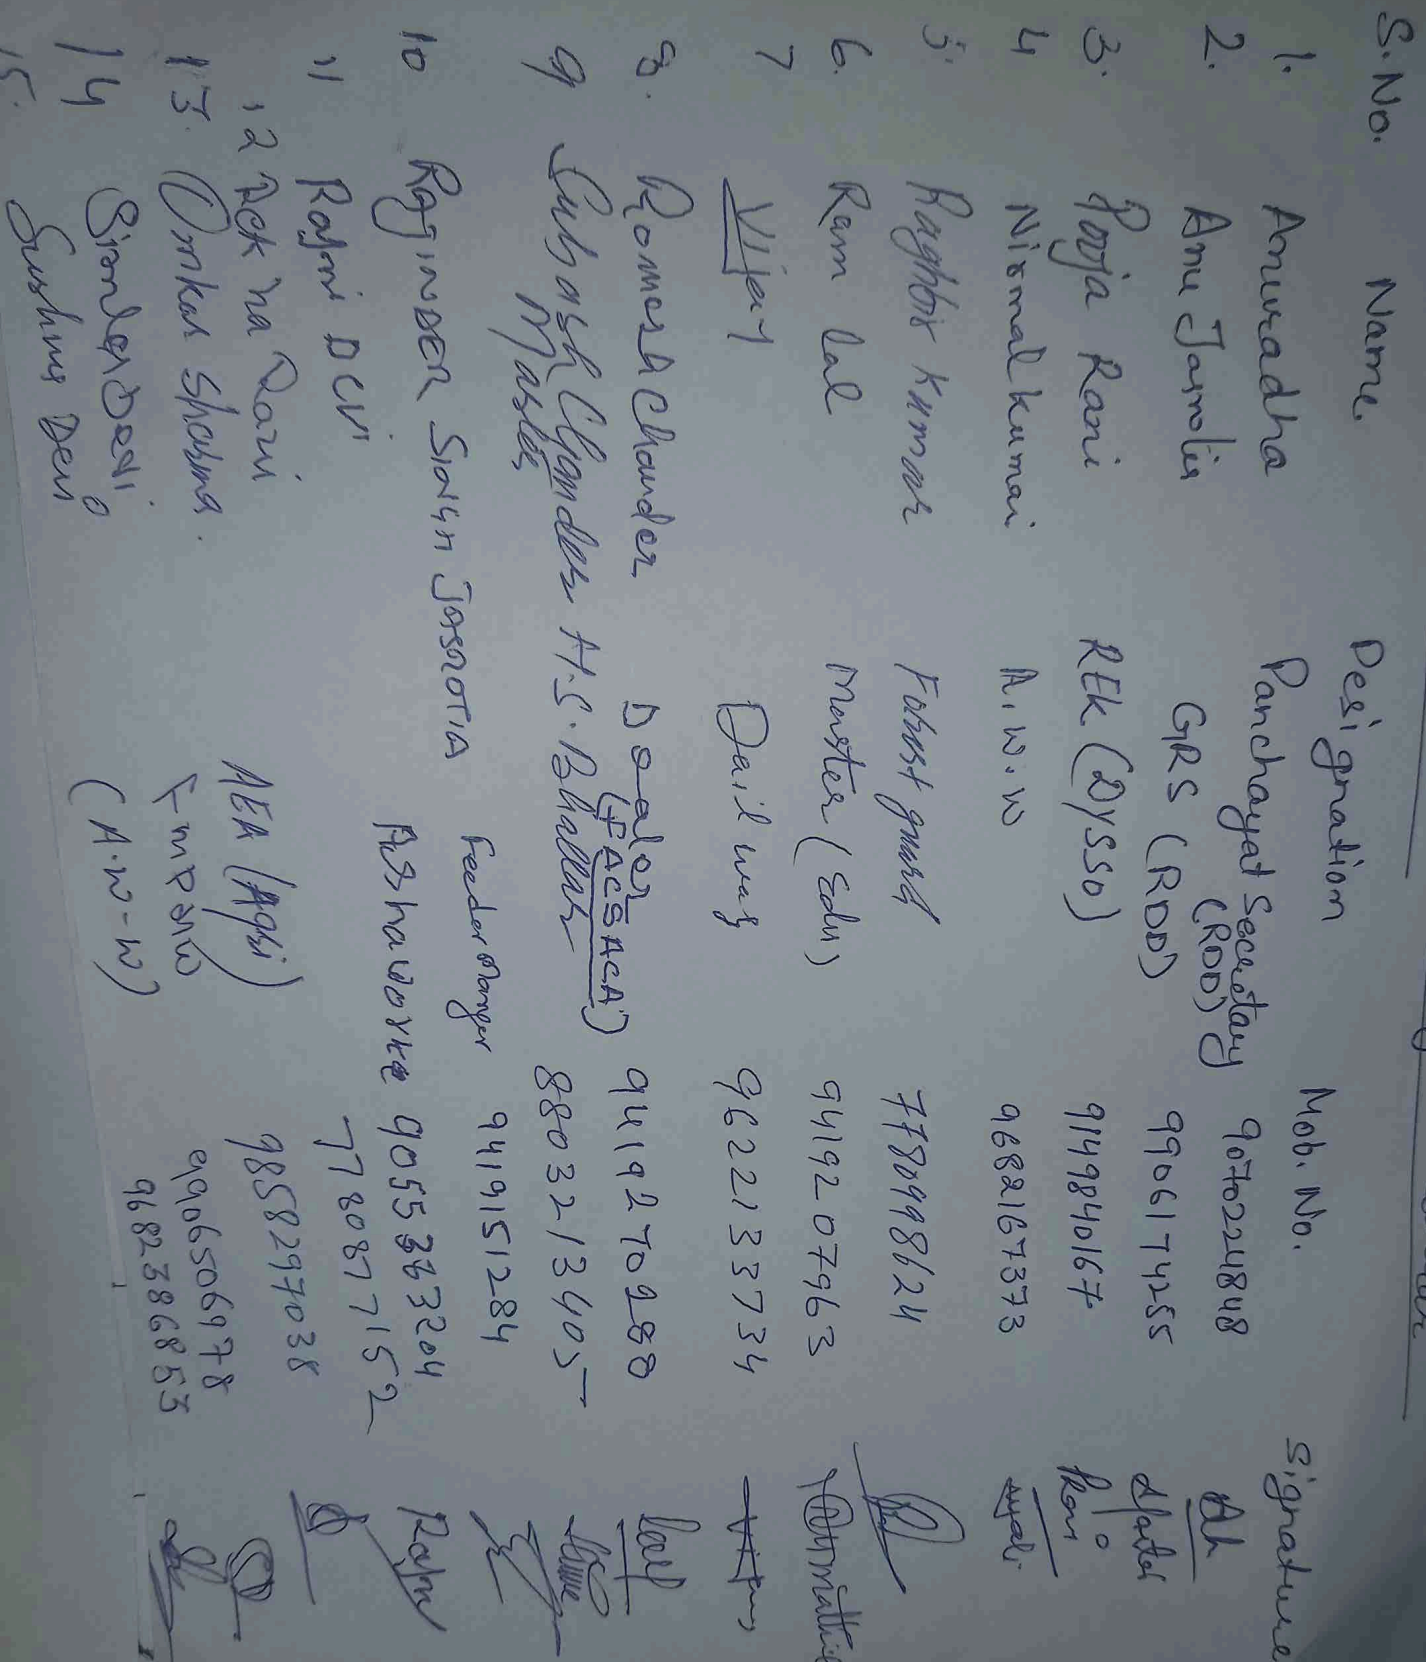 S.No. Name. Designation Mob. No. Signature
1. Anuradha Panchayat Secretary (RDD) 9070224848
2. Anu Jasrotia GRS (RDD) 9906174255
3. Pooja Rani REK (DYSSO) 9149840167 Rani
4 Nirmal kumari A.W.W 9682167373
5. Raghbir Kumar Forest guard 7780998624
6. Ram Lal Master (Edu) 9419207963
7 Vijay Dail wag 9622133734
8. Romesh Chander Dealer (FACSACA) 9419270280
9 Subash Chander H.S. Bhallar 8803213405
Master
10 RajINDER SINGH JASROTIA Feeder Manger 9419151284
11 Rajni Devi Ashaworke 9055363204 Rajni
12 Rekha Rani 7780877152
13. Omkar Sharma. AEA (Agri) 9858297038
14 Simlo Devi 9906506978
15. Sushma Devi (A.W-W) 9682386853